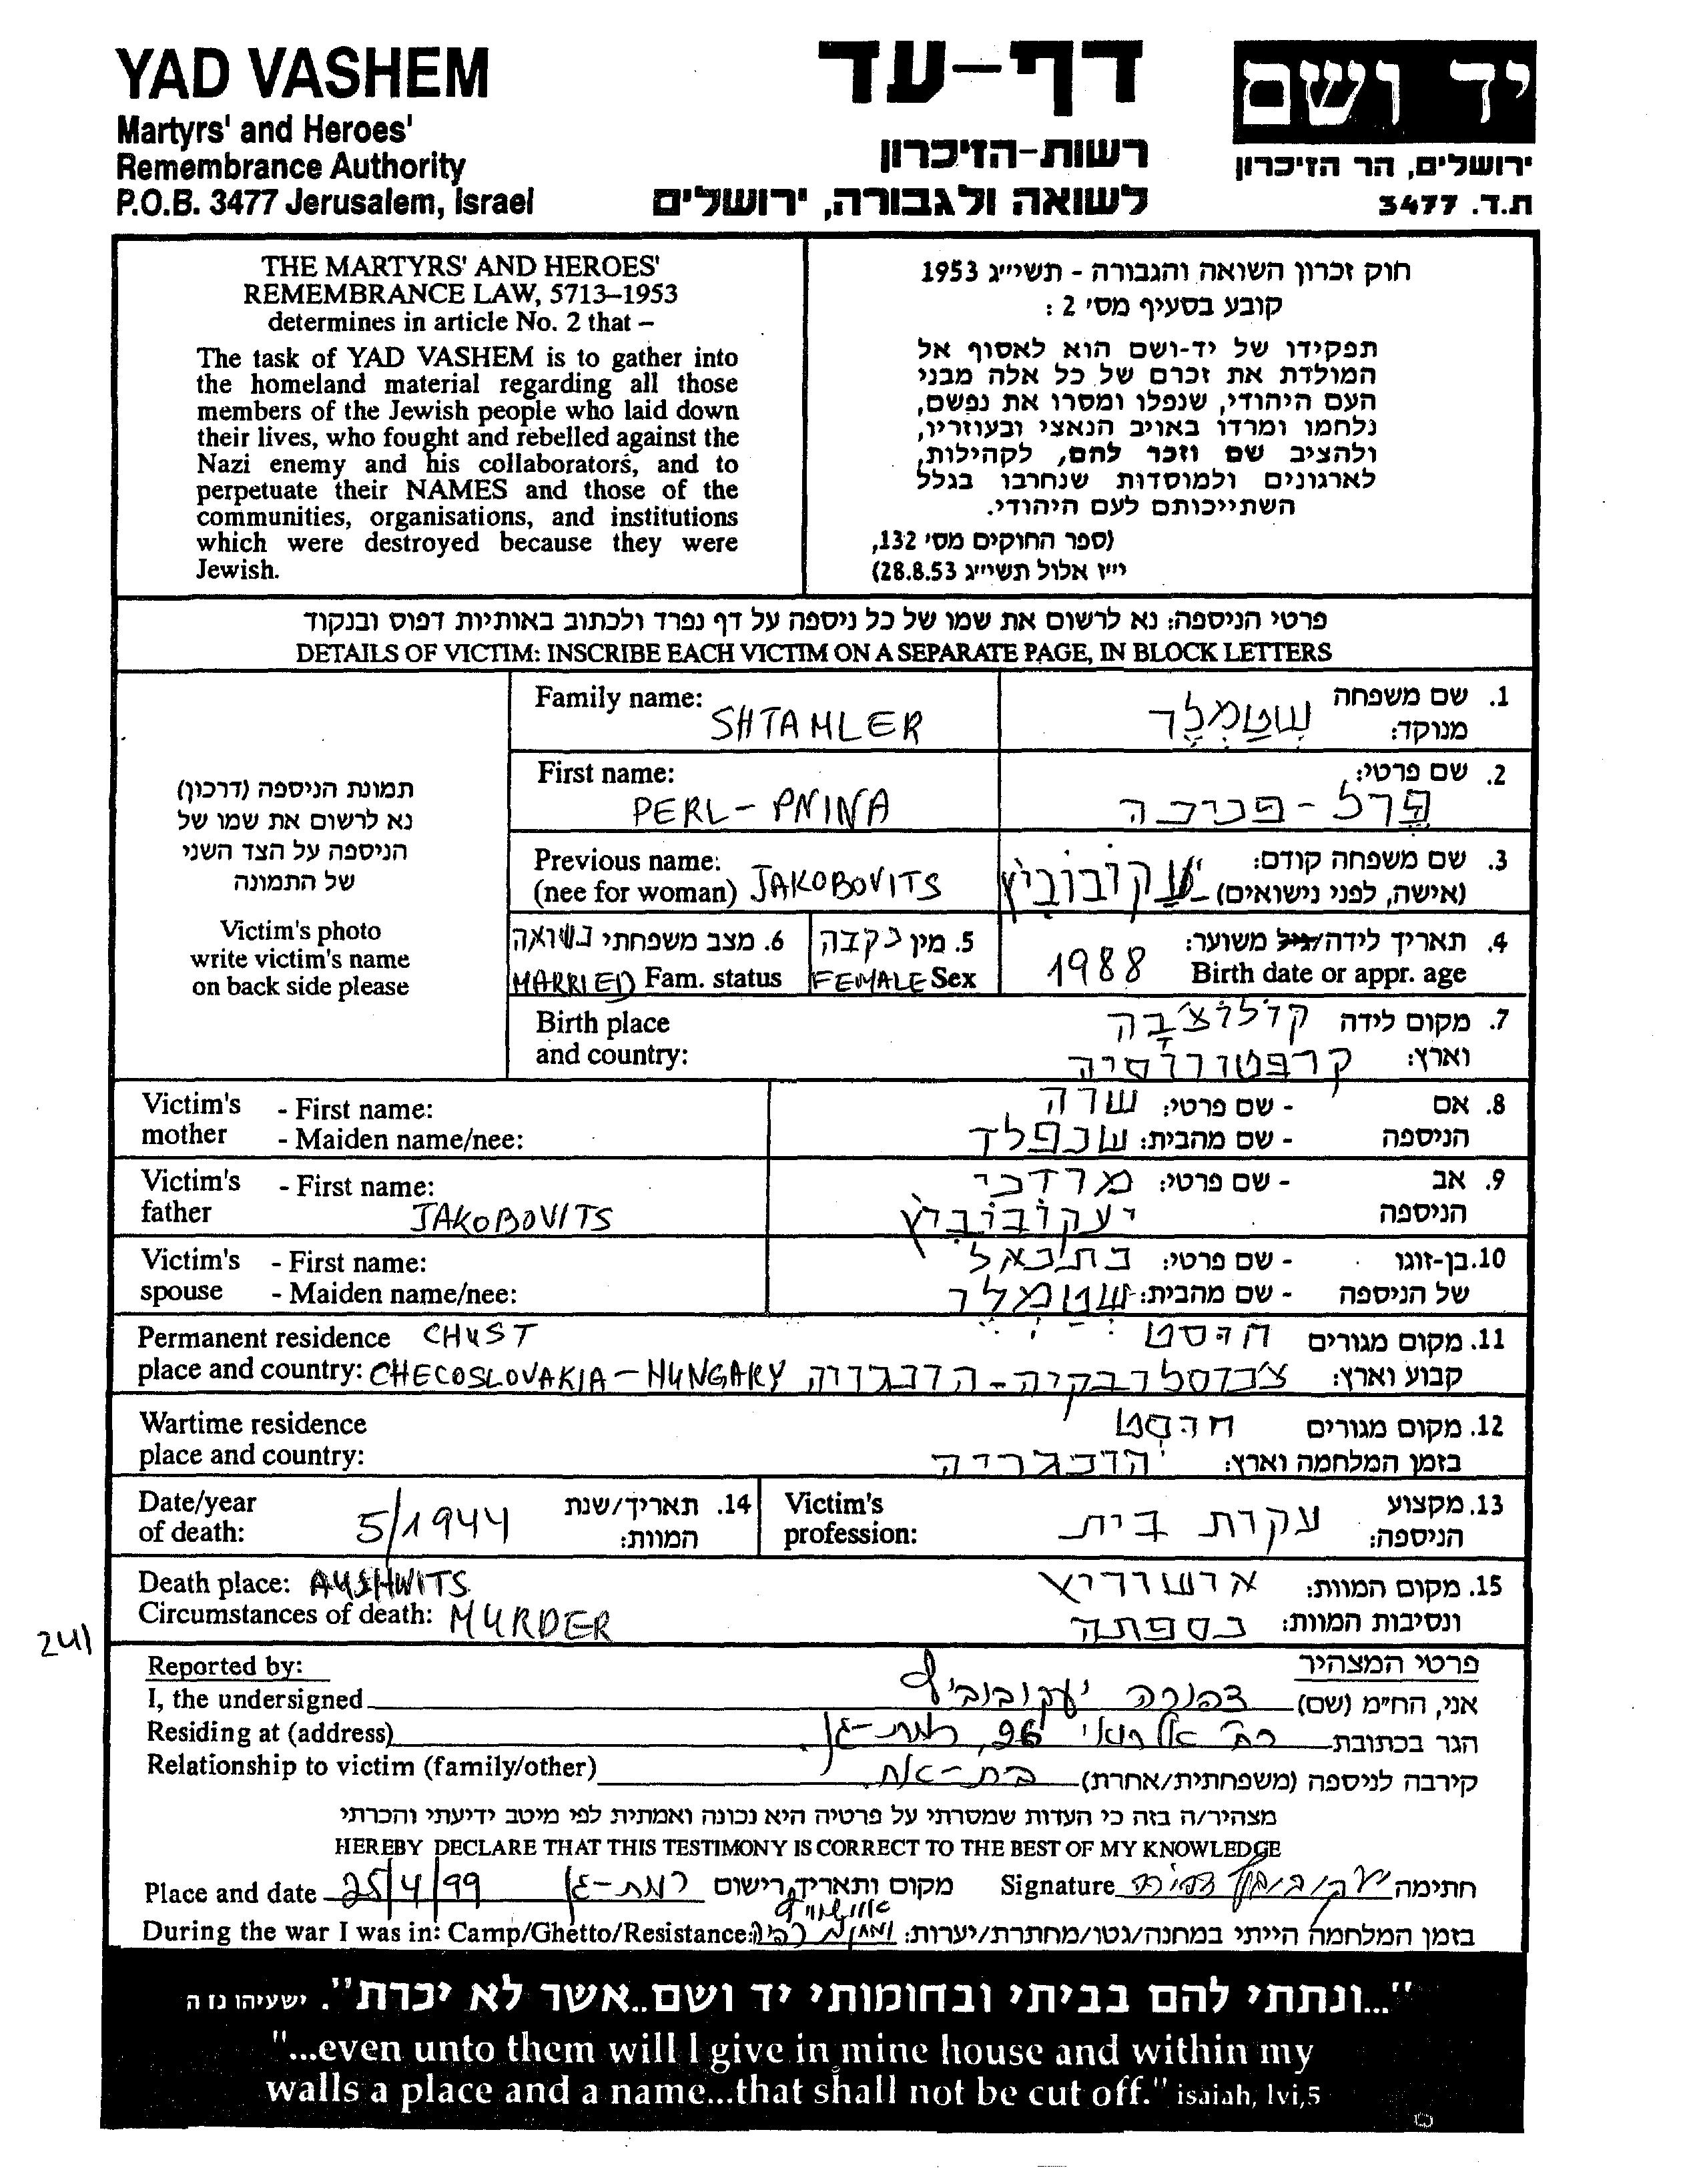 YAD VASHEM
Martyrs' and Heroes'
Remembrance Authority
P.O.B. 3477 Jerusalem, Israel
דף-עד
רשות-הזיכרון
לשואה ולגבורה, ירושלים
יד ושם
ירושלים, הר הזיכרון
ת.ד. 3477
THE MARTYRS' AND HEROES'
REMEMBRANCE LAW, 5713–1953
determines in article No. 2 that –
The task of YAD VASHEM is to gather into
the homeland material regarding all those
members of the Jewish people who laid down
their lives, who fought and rebelled against the
Nazi enemy and his collaborators, and to
perpetuate their NAMES and those of the
communities, organisations, and institutions
which were destroyed because they were
Jewish.
חוק זכרון השואה והגבורה - תשי״ג 1953
קובע בסעיף מס׳ 2 :
תפקידו של יד-ושם הוא לאסוף אל
המולדת את זכרם של כל אלה מבני
העם היהודי, שנפלו ומסרו את נפשם,
נלחמו ומרדו באויב הנאצי ובעוזריו,
ולהציב שם וזכר להם, לקהילות,
לארגונים ולמוסדות שנחרבו בגלל
השתייכותם לעם היהודי.
(ספר החוקים מס׳ 132,
י״ז אלול תשי״ג 28.8.53)
פרטי הניספה: נא לרשום את שמו של כל ניספה על דף נפרד ולכתוב באותיות דפוס ובנקוד
DETAILS OF VICTIM: INSCRIBE EACH VICTIM ON A SEPARATE PAGE, IN BLOCK LETTERS
תמונת הניספה (דרכון)
נא לרשום את שמו של
הניספה על הצד השני
של התמונה
Victim's photo
write victim's name
on back side please
Family name: SHTAMLER
1. שם משפחה מנוקד: שטמלר
First name: PERL-PNINA
2. שם פרטי: פרל-פנינה
Previous name: (nee for woman) JAKOBOVITS
3. שם משפחה קודם: (אישה, לפני נישואים) יעקובוביץ
4. תאריך לידה/גיל משוער: Birth date or appr. age 1988
5. מין נקבה FEMALE Sex
6. מצב משפחתי נשואה MARRIED Fam. status
Birth place
and country:
7. מקום לידה קולוצ'בה
וארץ: קרפטורוסיה
Victim's mother - First name:
- Maiden name/nee:
8. אם הניספה - שם פרטי: שרה
- שם מהבית: שנפלד
Victim's father - First name:
JAKOBOVITS
9. אב הניספה - שם פרטי: מרדכי
יעקובוביץ
Victim's spouse - First name:
- Maiden name/nee:
10. בן-זוגו של הניספה - שם פרטי: נתנאל
- שם מהבית: שטמלר
Permanent residence CHUST
place and country: CHECOSLOVAKIA-HUNGARY
11. מקום מגורים חוסט
קבוע וארץ: צ'כוסלובקיה-הונגריה
Wartime residence
place and country:
12. מקום מגורים חוסט
בזמן המלחמה וארץ: הונגריה
Date/year
of death: 5/1944
14. תאריך/שנת
המוות:
Victim's
profession:
13. מקצוע
הניספה: עקרת בית
Death place: AUSHWITS
Circumstances of death: MURDER
15. מקום המוות: אושוויץ
ונסיבות המוות: נספתה
241
Reported by:
פרטי המצהיר
I, the undersigned צפורה יעקובוביץ אני, הח״מ (שם)
Residing at (address) 26, רמת-גן הגר בכתובת
Relationship to victim (family/other) בת-אח קירבה לניספה (משפחתית/אחרת)
מצהיר/ה בזה כי העדות שמסרתי על פרטיה היא נכונה ואמתית לפי מיטב ידיעתי והכרתי
HEREBY DECLARE THAT THIS TESTIMONY IS CORRECT TO THE BEST OF MY KNOWLEDGE
Place and date 25/4/99 רמת-גן מקום ותאריך רישום Signature יעקובוביץ צפורה חתימה
אושוויץ
During the war I was in: Camp/Ghetto/Resistance: בזמן המלחמה הייתי במחנה/גטו/מחתרת/יערות:
"...ונתתי להם בביתי ובחומותי יד ושם..אשר לא יכרת". ישעיהו נו ה
"...even unto them will I give in mine house and within my
walls a place and a name...that shall not be cut off." isaiah, lvi,5